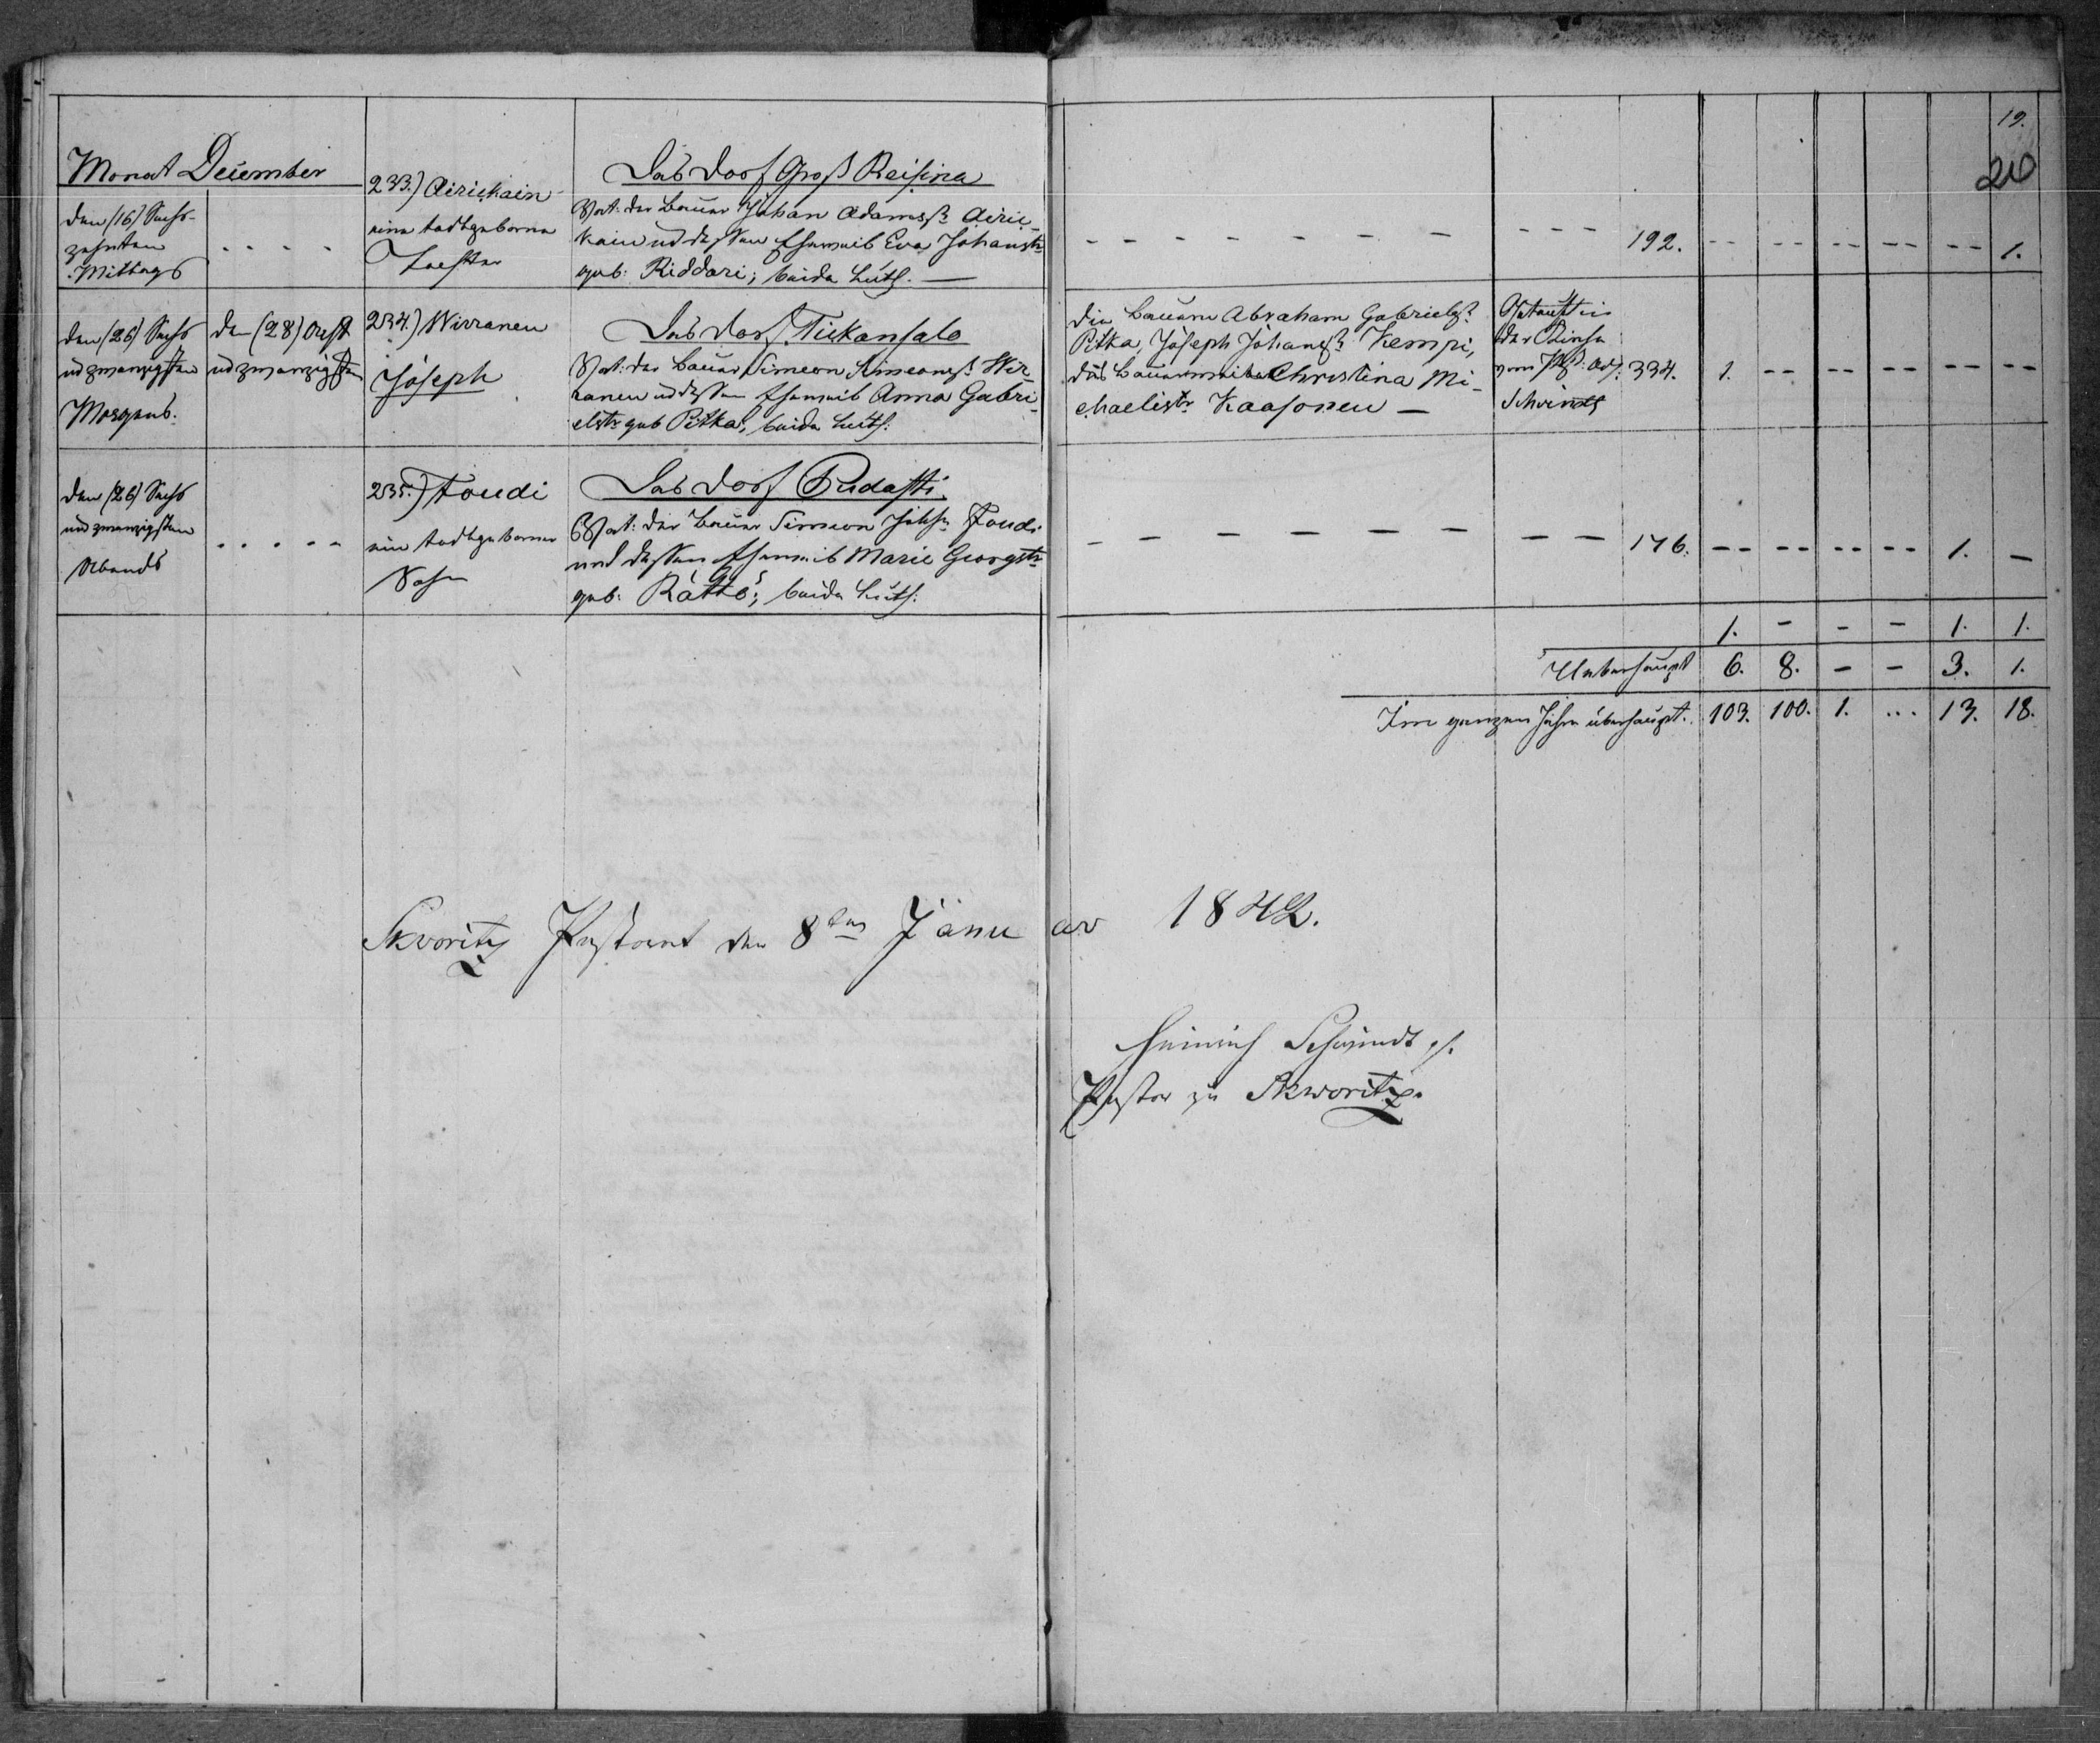 19.
20
Monat December
den (16) Sechs-
zehnten
Mittags
233.) Airickain
eine todtgeborne
Tochter
Das Dorf Groß Raisina
Vat: der Bauer Johan Adamss. Airic-
kain und dessen Eheweib Eva Johanstr
geb: Riddari; beide luth. —
192. 1.
den (26) Sechs
und zwanzigsten
Morgens.
den (28) Acht
und zwanzigsten
234.) Wirranen
Joseph
Das Dorf Tiekansalo
Vat: der Bauer Simeon Simeonss. Wir-
ranen und dessen Eheweib Anna Gabri-
elstr geb Pitka, beide luth:
Die Bauern Abraham Gabrielss.
Pitka, Joseph Johaness. Kempi,
das Bauernweib Christina Mi-
chaelistr Kaasonen —
Getauft in
der Kirche
vom Past:
Schwindt
334. 1. -- -- -- -- --
den (26) Sechs
und zwanzigsten
Abends
235.) Toudi
ein todtgeborner
Sohn
Das Dorf Pudasti.
Vat: der Bauer Simeon Johss. Toudi
und dessen Eheweib Marie Georgstr
geb: Rättö; beide luth:
176. -- -- -- -- 1. —
1. - - - 1. 1.
Ueberhaupt 6. 8. - - 3. 1.
Im ganzen Jahre überhaupt. 103. 100. 1. ... 13. 18.
Skworitz Pastorat den 8ten Januar 1842.
Heinrich Schwindt
Pastor zu Skworitz.